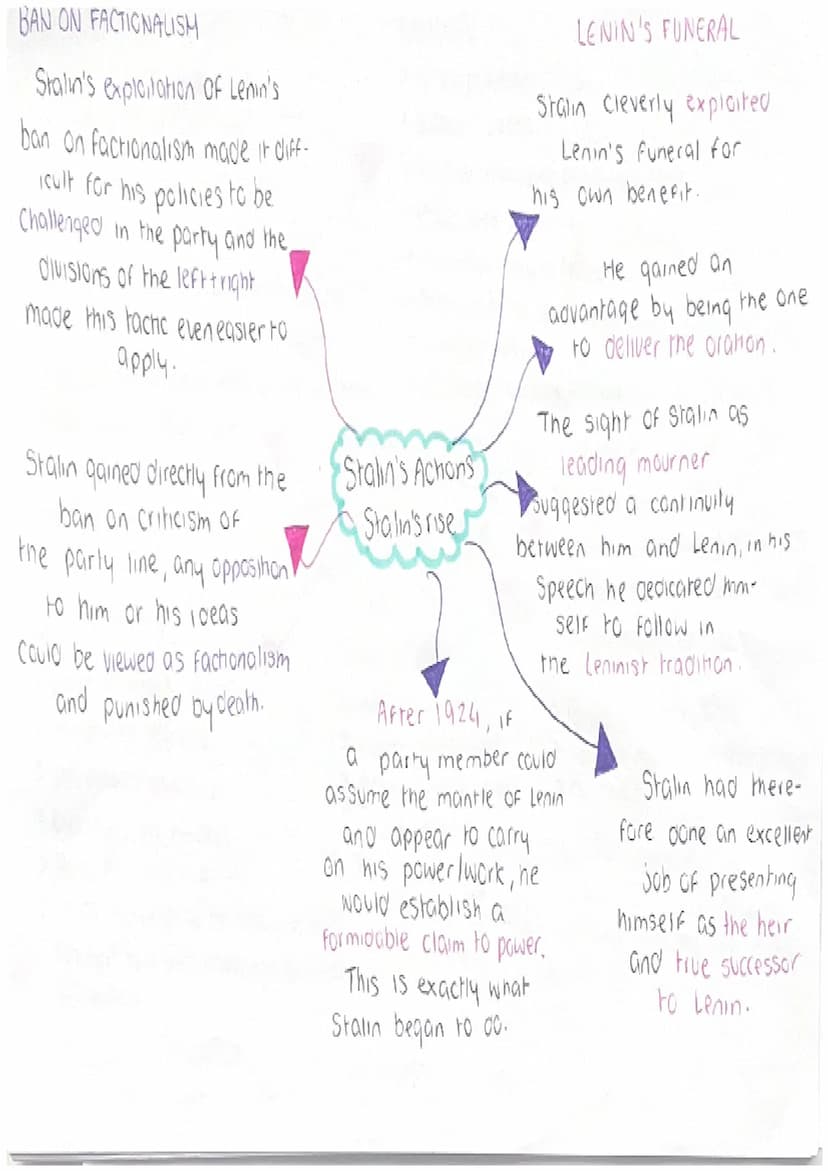 BAN ON FACTIONALISM
Stalin's exploitation of Lenin's
ban on factionalism made it diff-
icult for his policies to be
challenged in the party and the
divisions of the left + right
made this tactic even easier to
apply.
Stalin gained directly from the
ban on criticism of
the party line, any opposition
to him or his ideas
could be viewed as factionalism
and punished by death.
Stalin's Actions
Stalin's rise
LENIN'S FUNERAL
Stalin cleverly exploited
Lenin's funeral for
his own benefit.
He gained an
advantage by being the one
to deliver the oration.
The sight of Stalin as
leading mourner
suggested a continuity
between him and Lenin, in his
speech he dedicated him-
self to follow in
the Leninist tradition.
After 1924, if
a party member could
assume the mantle of Lenin
and appear to carry
on his power/work, he
would establish a
formidable claim to power.
This is exactly what
Stalin began to do.
Stalin had there-
fore done an excellent
job of presenting
himself as the heir
and true successor
to Lenin.